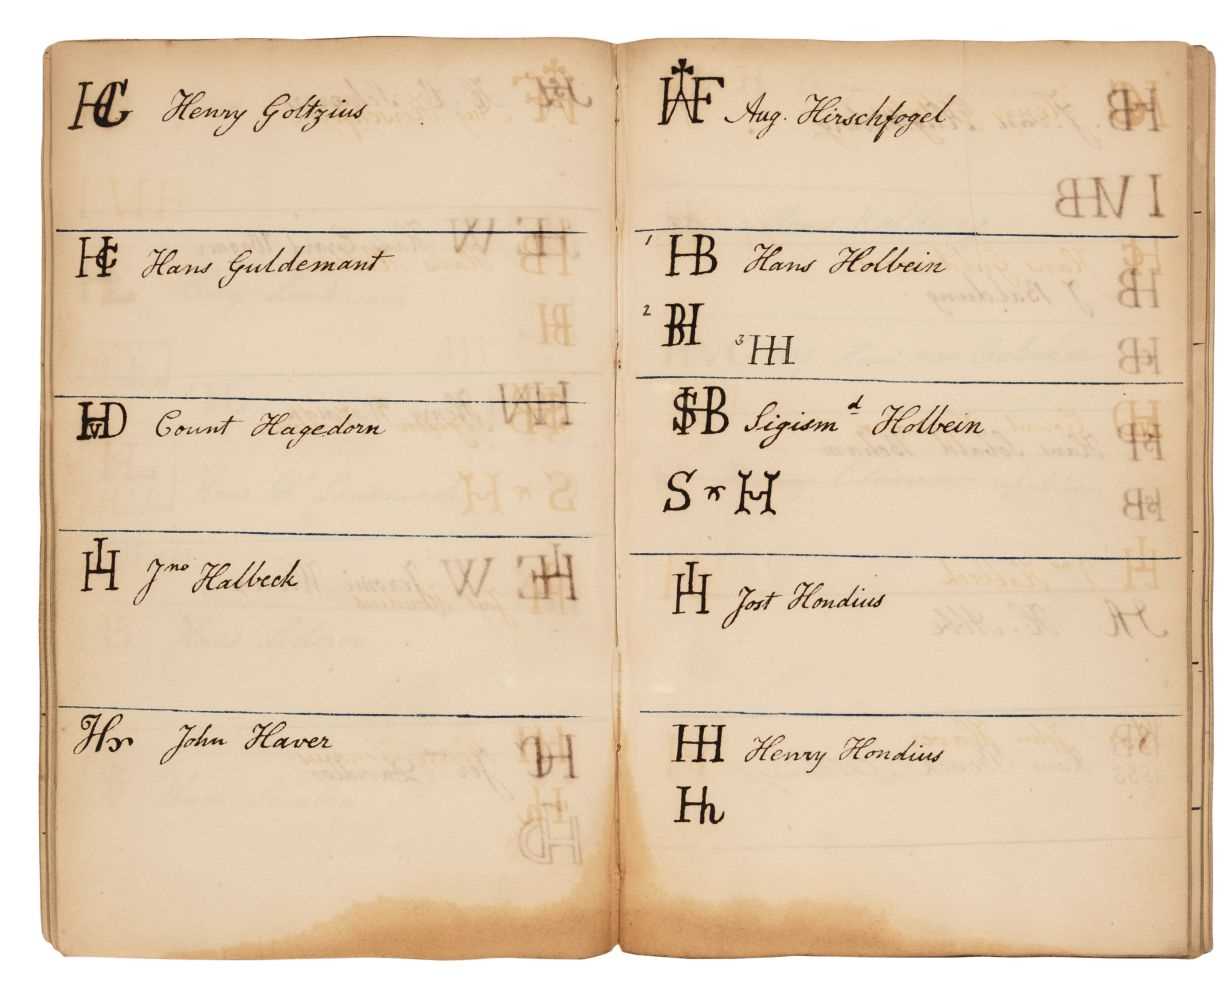 HG Henry Goltzius
HG Hans Guldemant
HVD Count Hagedorn
IH Jno Halbeck
Hr John Haver
HAF Aug. Hirschfogel
1 HB Hans Holbein
2 BH
3 HH
SHB Sigismd Holbein
S H
IH Jost Hondius
HH Henry Hondius
Hh